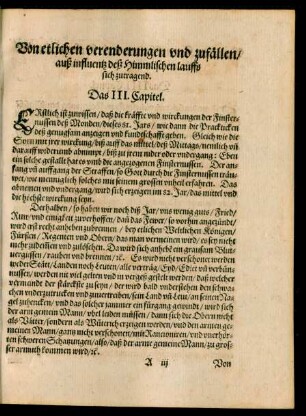 Von etlichen verenderungen vnd zufällen/
auß influentz deß Himmlischen lauffs
sich zutragend.
Das III. Capitel.
ERstlich ist zuwissen / daß die kräffte vnd wirckungen der Finster-
nussen deß Monden / dieses 81. Jars / wie dann die Practicken
deß genugsam anzeigen vnd kundschafft geben. Gleich wie die
Sonn mit irer wirckung / biß auff das mittel / deß Mittags / nemlich vñ
darauff widerumb abnimpt / biß zu jrem nider oder vndergang: Eben
ein solche gestalt hat es vmb die angezeigten Finsternussen. Der an-
fang vñ auffgang der Straffen / so Gott durch die Finsternussen träu-
wet / ist meniglich solches mit seinem grossen vnheil erfahren. Das
abnemen vnd vndergang / wird sich erzeigen im 82. Jar / das mittel vnd
die höchste wirckung jetzt.
Derhalben / so haben wir noch diß Jar / vns wenig guts / Friede
Ruw / vnd einigkeit zuverhoffen / dañ das Fewer / so vorhin angezündt /
wird erst recht anheben zubrennen / bey etlichen Weltlichen Königen /
Fürsten / Regenten vnd Obern / das man vermeinen wird / es sey nicht
mehr zudelffen vnd zuleschen. Da wird sich anhebē ein grausam Blut-
vergiessen / rauben vnd brennen / ꝛc. Es wird nicht verschonet werden
weder Stätt / Landen noch Leuten / alle verträg / Eyd / Edict vñ verbünd-
nussen / werden mit viel gelten vnd in vergeß gestelt werden / daß welcher
wirdt am̃ der stärckeste zu seyn / der wird bald vnderstehen den schwa-
chen vnderzutrucken vnd zuvertreiben / sein Land vñ Leut / an seinen Na-
gel zuhencken / vnd das solches jammer ein fürgang gewindt / wird sich
der arm gemein Mann / vbel leiden müssen / dann sich die Obern nicht
als Vätter / sondern als Wüterich erzeigen werden / vnd den armen ge-
meinen Mann / gantz nicht verschonen / mit Rantzionen / vnd vnerhör-
ten schweren Schatzungen / also / daß der arme gemeine Mann / zu gros-
ser armuth kommen wird / ꝛc.
A iij
Von